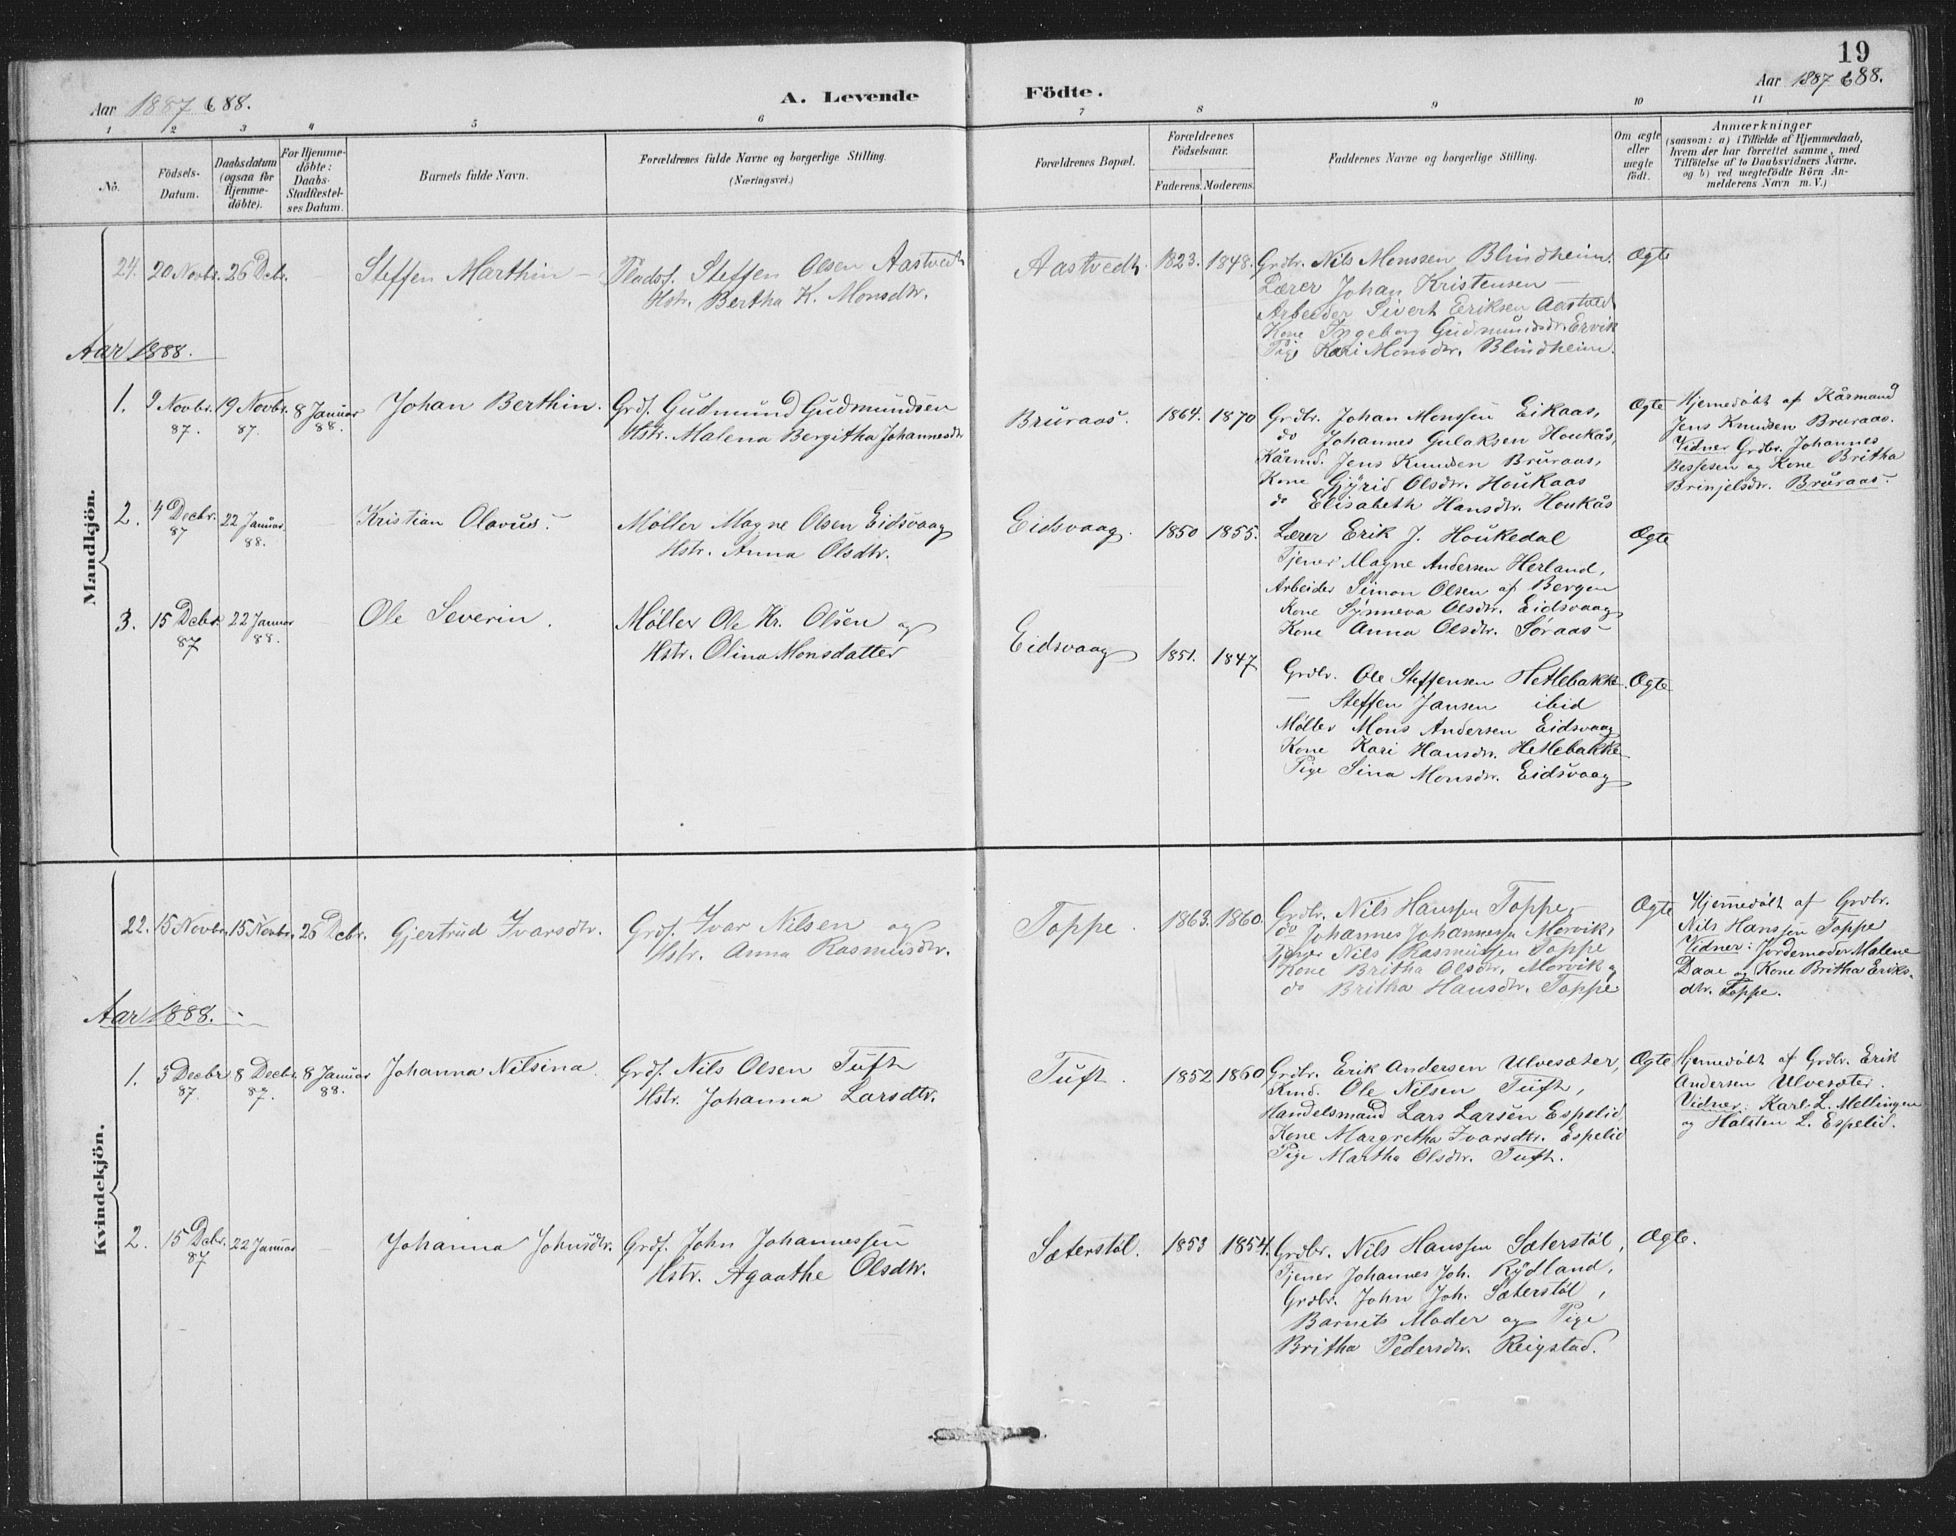 19
Aar 1887 & 88.
A. Levende
Födte.
Aar 1887 & 88.
1 2 3 4 5 6 7 8 9 10 11
No.
Födsels-Datum.
Daabsdatum (ogsaa for Hjemme-döbte).
For Hjemme-döbte: Daabs-Stadfæstel-ses Datum.
Barnets fulde Navn.
Forældrenes fulde Navne og borgerlige Stilling. (Næringsvei.)
Forældrenes Bopæl.
Forældrenes Födselsaar.
Faderens. Moderens.
Faddernes Navne og borgerlige Stilling.
Om ægte eller uægte födt.
Anmærkninger
(saasom: a) i Tilfælde af Hjemmedaab,
hvem der har forrettet samme, med
Tilföielse af to Daabsvidners Navne.
og b) ved uegtefödte Börn An-
melderens Navn m. V.)
Mandkjön.
24. 20 Novbr. 26 Dcbr. — Steffen Marthin — Pladsf. Steffen Olsen Aastvedt
Hstr. Bertha K. Monsdtr.
Aastvedt. 1823. 1848. Grdbr. Nils Monssen Blindheim. Ægte
Lærer Johan Kristensen —
Arbeider Sivert Eriksen Aastved
Kone Ingeborg Gudmundsdr. Ervik
Pige Kari Monsdtr. Blindheim.
Aar 1888.
1. 9 Novbr. 87. 19 Novbr. 87. 8 Januar 88. Johan Berthin. Grdf. Gudmund Gudmundsen
Hstr. Malena Bergitha Johannesdtr
Bruraas. 1864. 1870 Grdbr. Johan Monssen Eikaas, Ægte
do Johannes Gulaksen Houkås,
Kårmd. Jens Knudsen Bruraas,
Kone Gjyrid Olsdtr. Houkaas
do Elisabeth Hansdtr. Houkås
Hjemedøbt af Kårmand
Jens Knudsen Bruraas.
Vidner Grdbr. Johannes
Bessesen og Kone Britha
Brinjelsdtr. Bruraas.
2. 4 Decbr. 87 22 Januar. 88. — Kristian Olavus. Møller Magne Olsen Eidsvaag
Hstr. Anna Olsdtr.
Eidsvaag. 1850 1855. Lærer Erik J. Houkedal Ægte
Tjener Magne Andersen Herland,
Arbeider Simon Olsen af Bergen
Kone Synneva Olsdtr. Eidsvaag
Kone Anna Olsdtr. Søraas
3. 15 Dcbr. 87 22 Januar 88. — Ole Severin. Møller Ole Kr. Olsen og
Hstr. Olina Monsdatter
Eidsvaag 1851. 1847 Grdbr. Ole Steffensen Hetlebakke. Ægte
— Steffen Jansen ibid
Møller Mons Andersen Eidsvaag
Kone Kari Hansdtr. Hetlebakke
Pige Sina Monsdtr. Eidsvaag
Kvindekjön.
22. 15 Novbr. 15 Novbr. 26 Dcbr. Gjertrud Ivarsdtr. Grdf. Ivar Nilsen og
Hstr. Anna Rasmusdtr.
Toppe. 1863. 1860. Grdbr. Nils Hanssen Toppe Ægte
do Johannes Johannessen Morvik,
Tjener Nils Rasmussen Toppe
Kone Britha Olsdtr. Morvik og
do Britha Hansdtr. Toppe
Hjemedøbt af Grdbr.
Nils Hanssen Toppe
Vidner: Jordemoder Malene
Daae og Kone Britha Eriks-
dtr. Toppe.
Aar 1888.
1. 3 Decbr 87. 8 Decbr. 87. 8 Januar 88. Johanna Nilsina Grdf. Nils Olsen Tuft
Hstr. Johanna Larsdtr.
Tuft. 1852 1860 Grdbr. Erik Andersen Ulvesæter, Ægte
Kmd. Ole Nilsen Tuft,
Handelsmand Lars Larsen Espelid
Kone Margretha Ivarsdtr. Espelid
Pige Martha Olsdtr. Tuft.
Hjemedøbt af Grdbr. Erik
Andersen Ulvesæter.
Vidner: Karl L. Mellingen
og Halsten L. Espelid.
2. 15 Dcbr. 87 22 Januar — Johanna Johnsdtr. Grdf. John Johannessen
Hstr. Agaathe Olsdtr.
Sæterstøl. 1853 1854. Grdbr. Nils Hanssen Sæterstøl, Ægte.
Tjener Johannes Joh. Rydland,
Grdbr. John Joh. Sæterstøl,
Barnets Moder og Pige
Britha Pedersdtr. Reigstad.